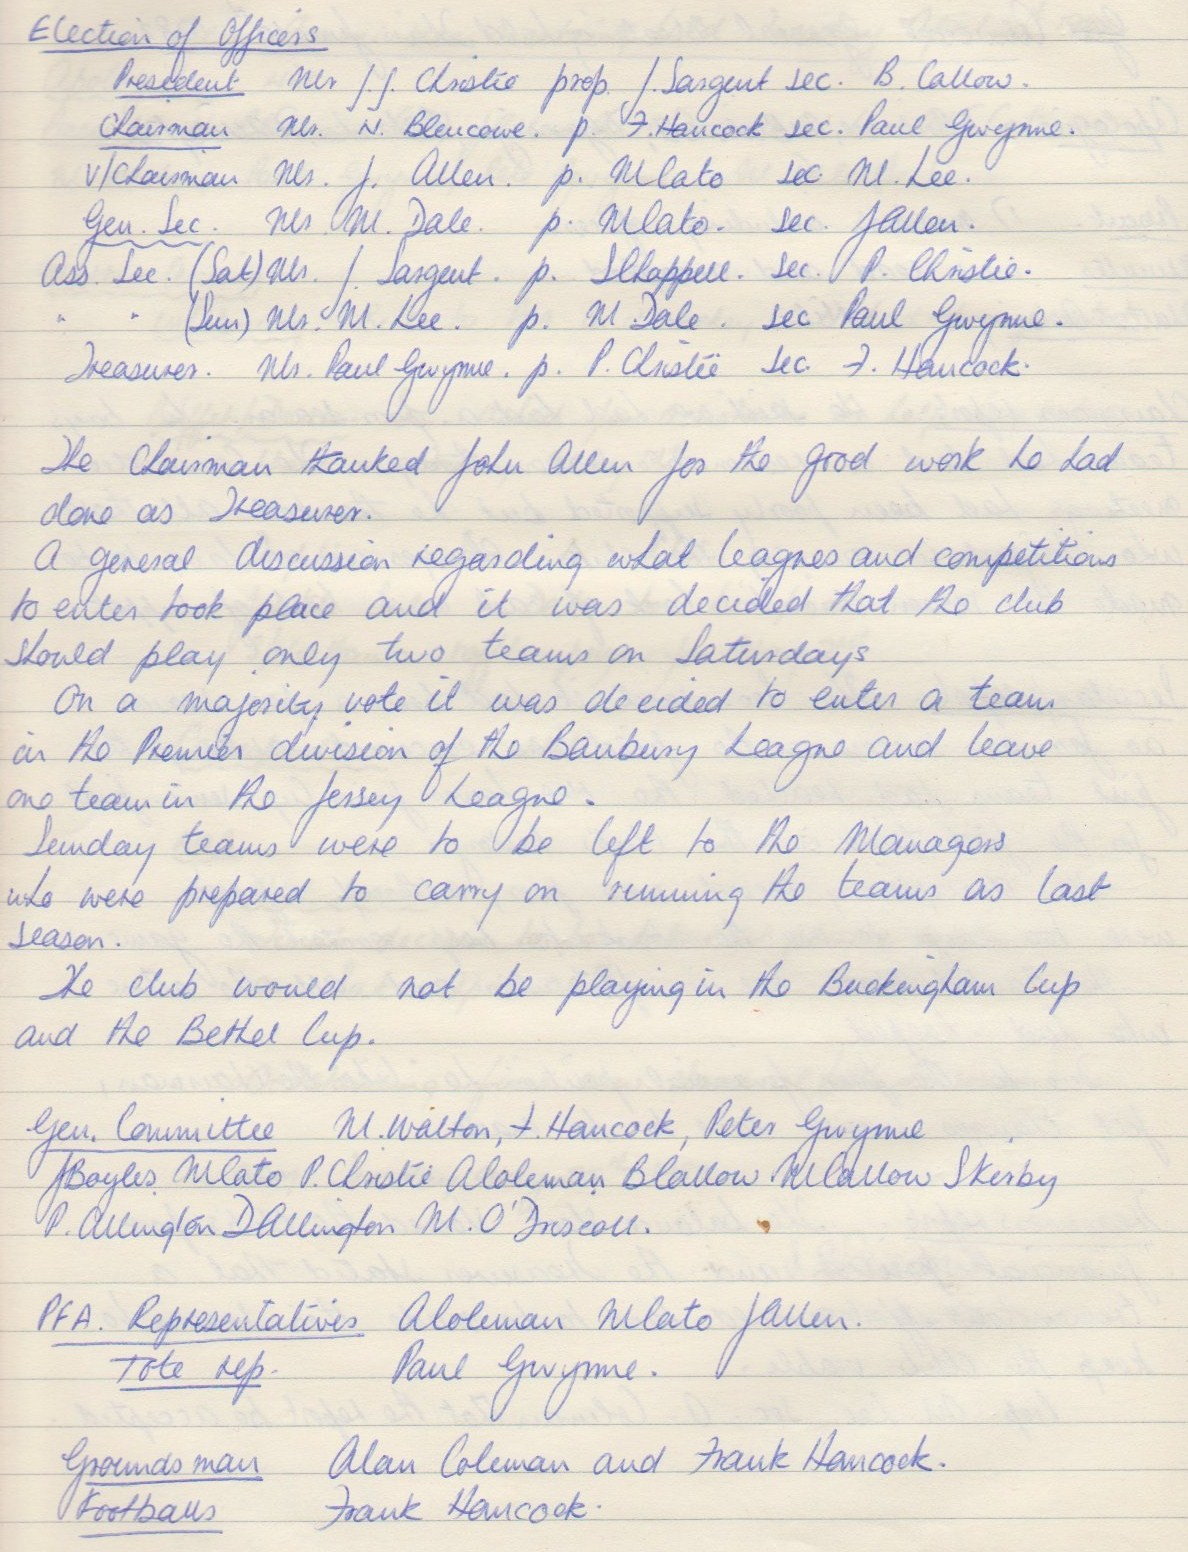 Election of Officers
President Mr J.J. Christie prop. J. Sargent sec. B. Callow.
Chairman Mr. N. Blencowe. p. F. Hancock sec. Paul Gwynne.
V/Chairman Mr. J. Allen. p. M Cato sec. M. Lee.
Gen. Sec. Mr M. Dale. p. M Cato. sec. J Allen.
Ass. Sec. (Sat) Mr. J. Sargent. p. S Chappell. sec. P. Christie.
" " (Sun) Mr. M. Lee. p. M Dale. sec Paul Gwynne.
Treasurer. Mr. Paul Gwynne. p. P. Christie sec. F. Hancock.
The Chairman thanked John Allen for the good work he had
done as Treasurer.
A general discussion regarding what leagues and competitions
to enter took place and it was decided that the club
should play only two teams on Saturdays
On a majority vote it was decided to enter a team
in the Premier division of the Banbury League and leave
one team in the Jersey League.
Sunday teams were to be left to the Managers
who were prepared to carry on running the teams as last
season.
The club would not be playing in the Buckingham Cup
and the Bethel Cup.
Gen. Committee M. Walton, F. Hancock, Peter Gwynne
J Boyles M Cato P. Christie A Coleman B Callow M Callow S Kerby
P. Allington D Allington M. O'Driscoll.
PFA. Representatives A Coleman M Cato J Allen.
Tote rep. Paul Gwynne.
Grounds man Alan Coleman and Frank Hancock.
Footballs Frank Hancock.